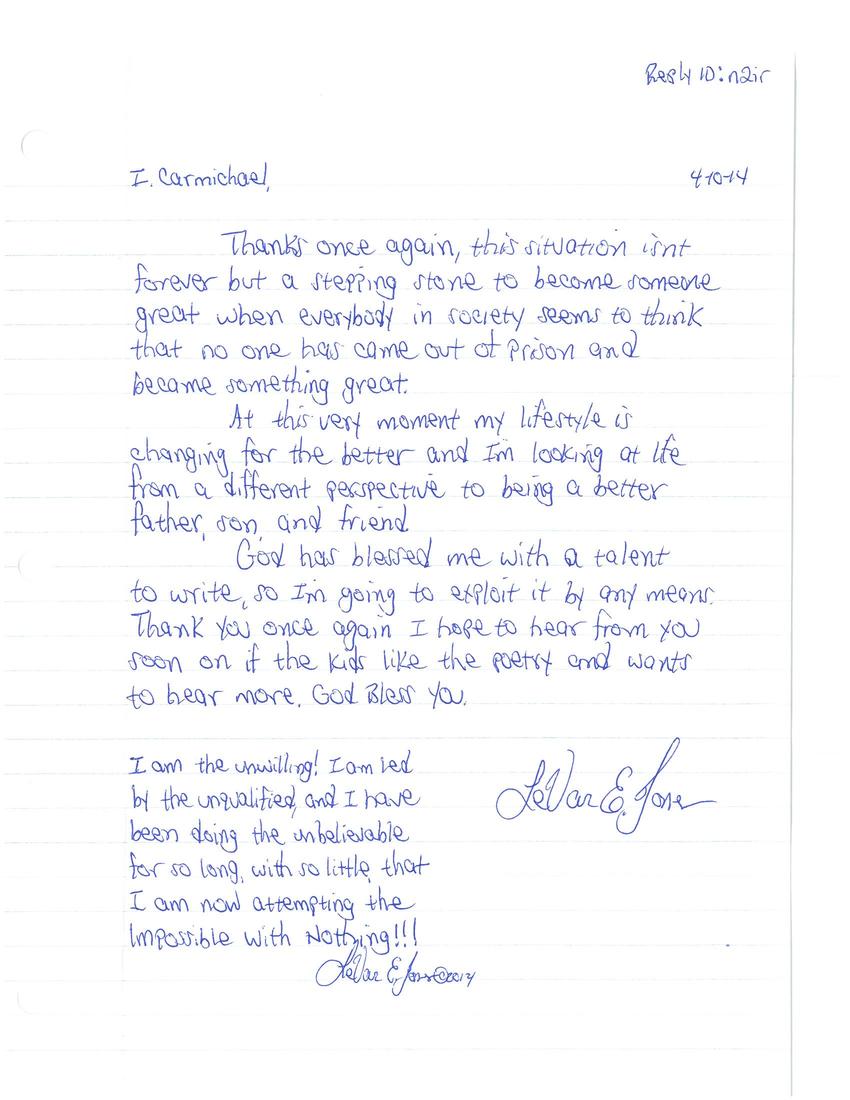 Reply ID: n2ir
I. Carmichael,
4-10-14
Thanks once again, this situation isnt
forever but a stepping stone to become someone
great when everybody in society seems to think
that no one has came out of prison and
became something great.
At this very moment my lifestyle is
changing for the better and I'm looking at life
from a different perspective to being a better
father, son, and friend
God has blessed me with a talent
to write, so I'm going to exploit it by any means.
Thank you once again I hope to hear from you
soon on if the kids like the poetry and wants
to hear more. God Bless You.
I am the unwilling! I am led
by the unqualified, and I have
been doing the unbelievable
for so long, with so little, that
I am now attempting the
Impossible with Nothing!!!
LeVar E. Jones
LeVar E. Jones©2014